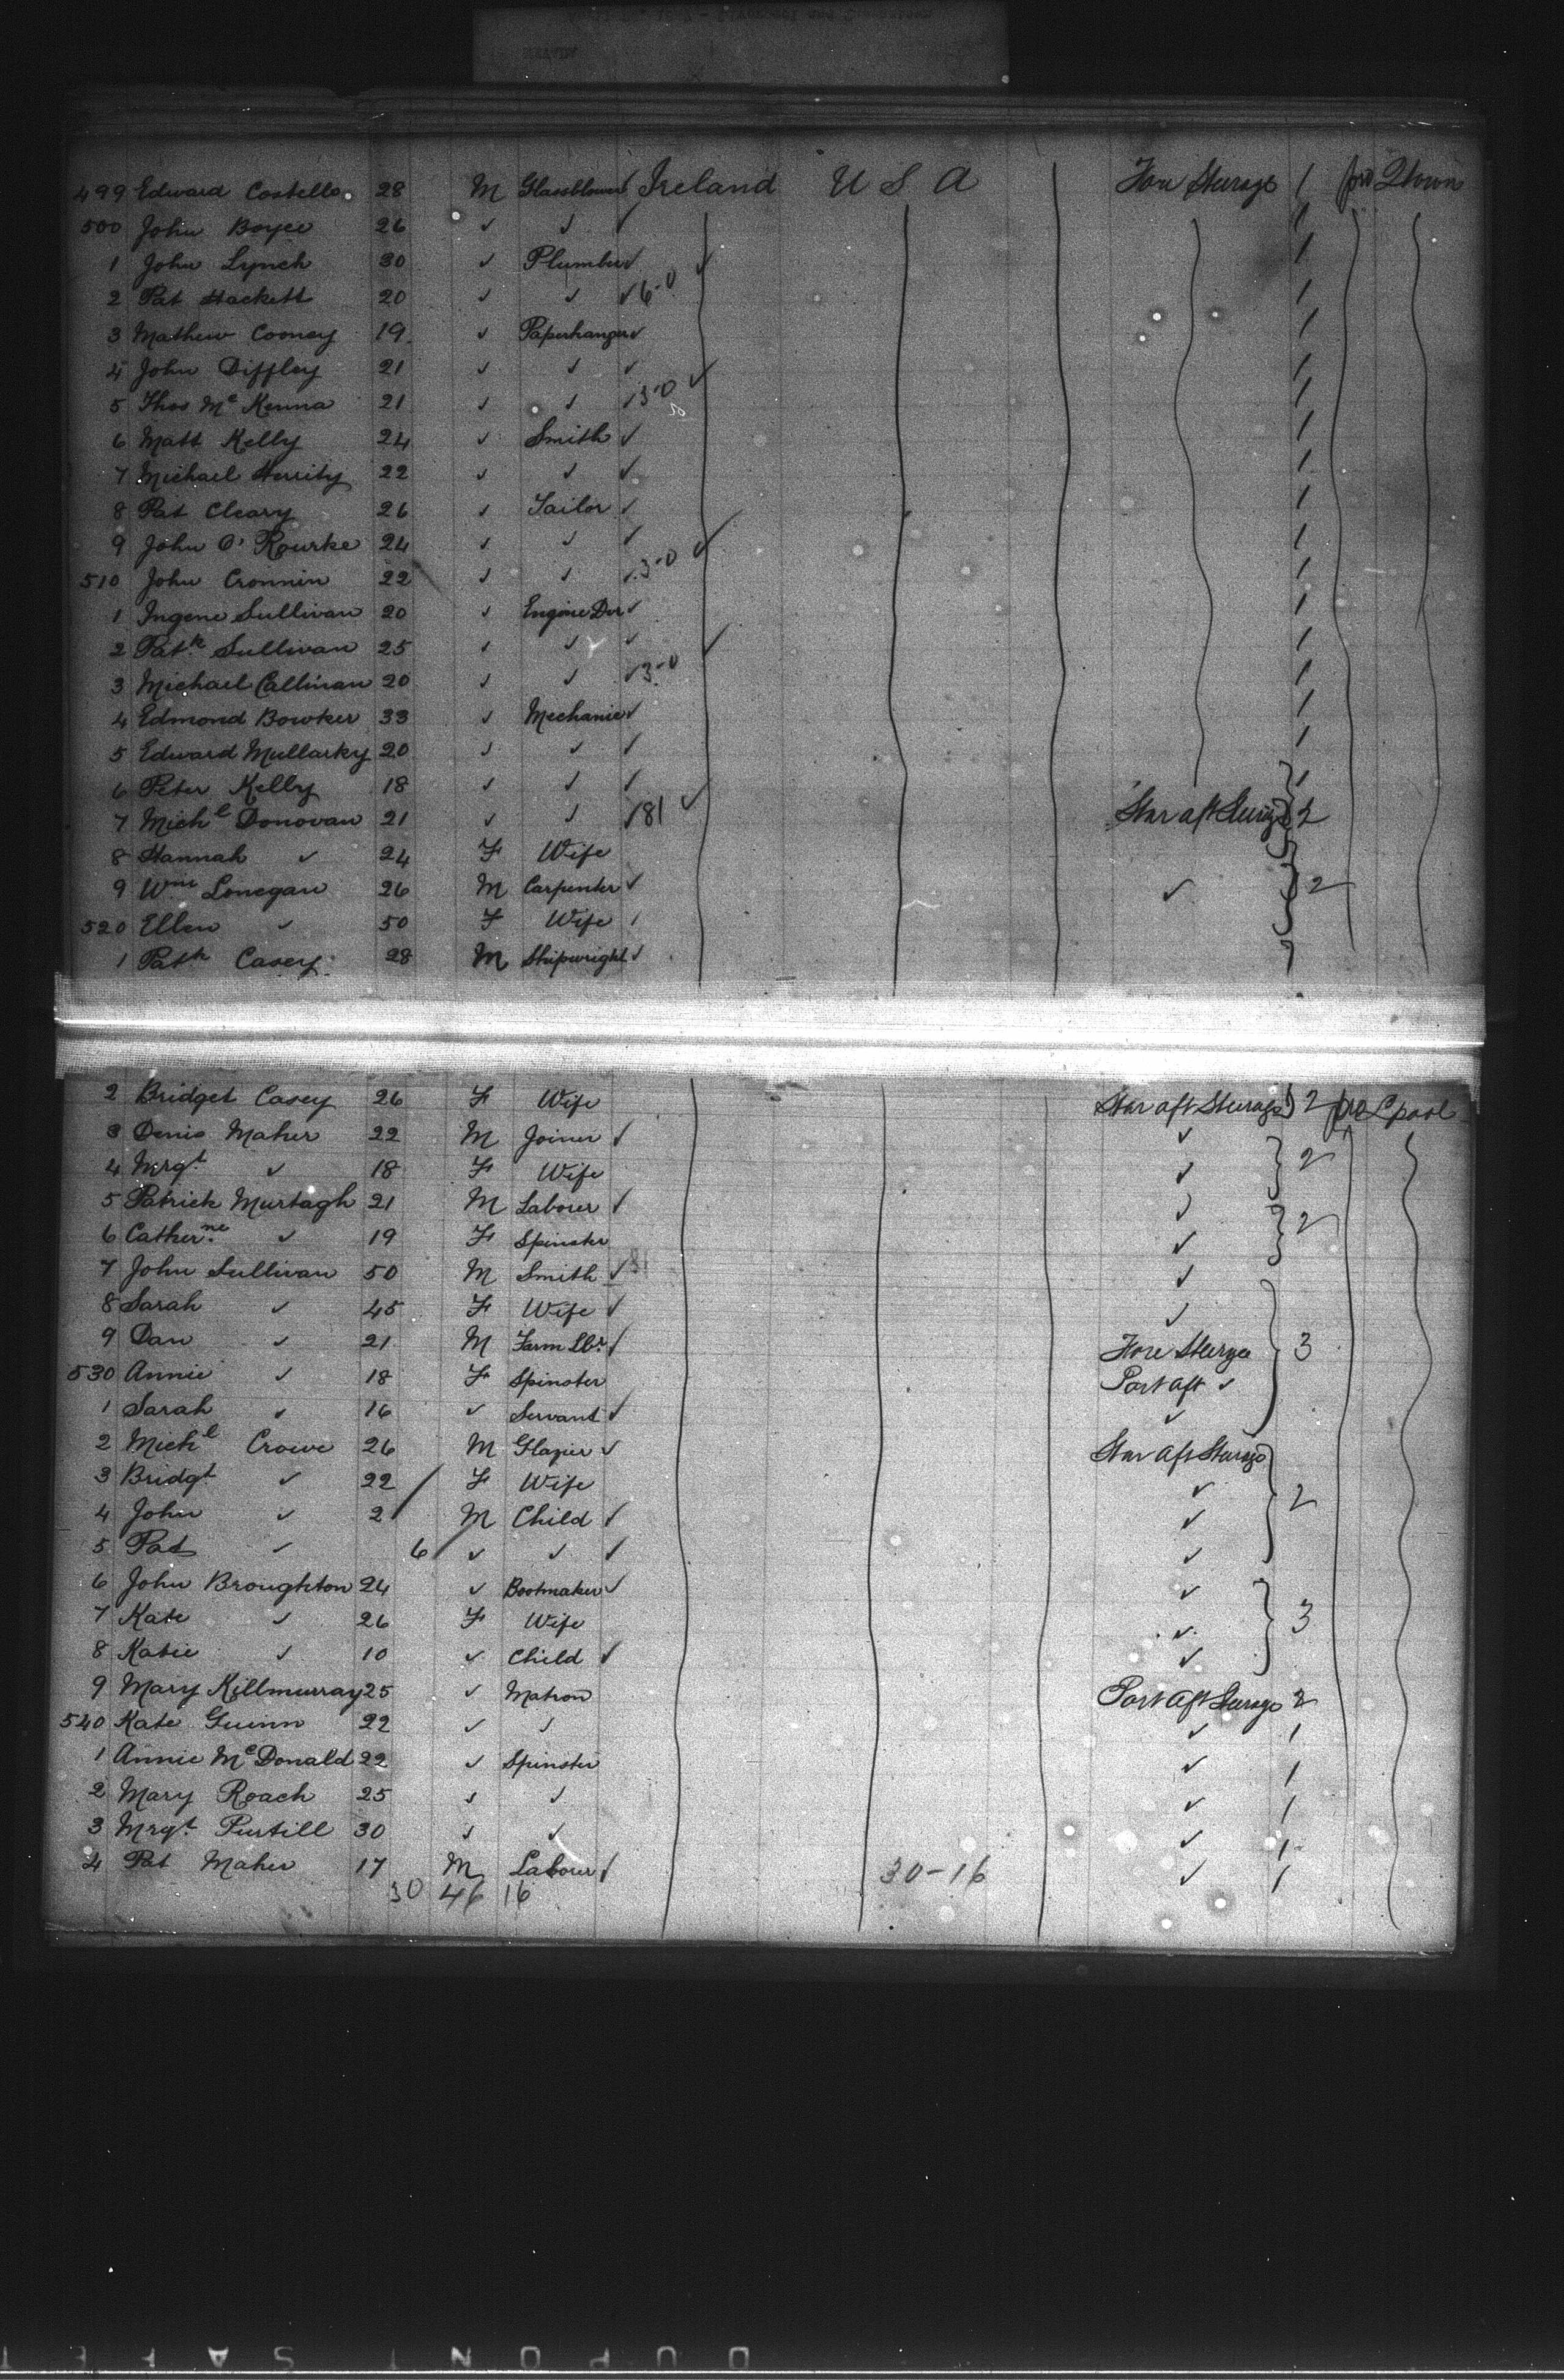 499 Edward Costello 28 M Glassblower ✓ Ireland U S A Fore Sterage 1 pro Qtown
500 John Boyce 26 ✓ ✓ ✓ 1
1 John Lynch 30 ✓ Plumber ✓ ✓ 1
2 Pat Hackett 20 ✓ ✓ ✓ 6-0 1
3 Mathew Cooney 19 ✓ Paperhanger ✓ 1
4 John Diffley 21 ✓ ✓ ✓ ✓ 1
5 Thos Mc Kenna 21 ✓ ✓ ✓ 3-0 1
6 Matt Kelly 24 ✓ Smith ✓ 1
7 Michael Herrity 22 ✓ ✓ ✓ 1
8 Pat Cleary 26 ✓ Tailor ✓ 1
9 John O'Rourke 24 ✓ ✓ ✓ ✓ 1
510 John Cronnin 22 ✓ ✓ ✓ 3-0 1
1 Ingene Sullivan 20 ✓ Engine Dvr ✓ 1
2 Patk Sullivan 25 ✓ ✓ ✓ ✓ 1
3 Michael Callinan 20 ✓ ✓ ✓ 3-0 1
4 Edmond Bowker 33 ✓ Mechanic ✓ 1
5 Edward Mullarky 20 ✓ ✓ ✓ 1
6 Peter Kelly 18 ✓ ✓ ✓ 1
7 Michl Donovan 21 ✓ ✓ ✓ 81 ✓ Star aft Sterage 2
8 Hannah ✓ 24 F Wife
9 Wm Lonegan 26 M Carpenter ✓ ✓ 2
520 Ellen ✓ 50 F Wife
1 Patk Casey 28 M Shipwright ✓
2 Bridget Casey 26 F Wife Star aft Sterage 2 pro Lpool
3 Denis Maher 22 M Joiner ✓ ✓
4 Mrgt ✓ 18 F Wife ✓ 2
5 Patrick Murtagh 21 M Laborer ✓ ✓
6 Catherne ✓ 19 F Spinster ✓ 2
7 John Sullivan 50 M Smith ✓ 81 ✓
8 Sarah ✓ 45 F Wife ✓ ✓
9 Dan ✓ 21 M Farm Lbr ✓ Fore Sterge 3
530 Annie ✓ 18 F Spinster Port aft ✓
1 Sarah ✓ 16 ✓ Servant ✓ ✓
2 Michl Crowe 26 M Glazier ✓ Star Aft Sterage
3 Bridgt ✓ 22 F Wife ✓
4 John ✓ 2 M Child ✓ ✓ 2
5 Pat ✓ 6 ✓ ✓ ✓ ✓
6 John Broughton 24 ✓ Bootmaker ✓ ✓
7 Kate ✓ 26 F Wife ✓ 3
8 Katie ✓ 10 ✓ Child ✓ ✓
9 Mary Killmurray 25 ✓ Matron Port Aft Sterage 2
540 Kate Guinn 22 ✓ ✓ ✓ 1
1 Annie McDonald 22 ✓ Spinster ✓ 1
2 Mary Roach 25 ✓ ✓ ✓ 1
3 Mrgt Purtill 30 ✓ ✓ ✓ 1
4 Pat Maher 17 M Laborer ✓ 30-16 ✓ 1
30 46 16
DUPONT SAFET